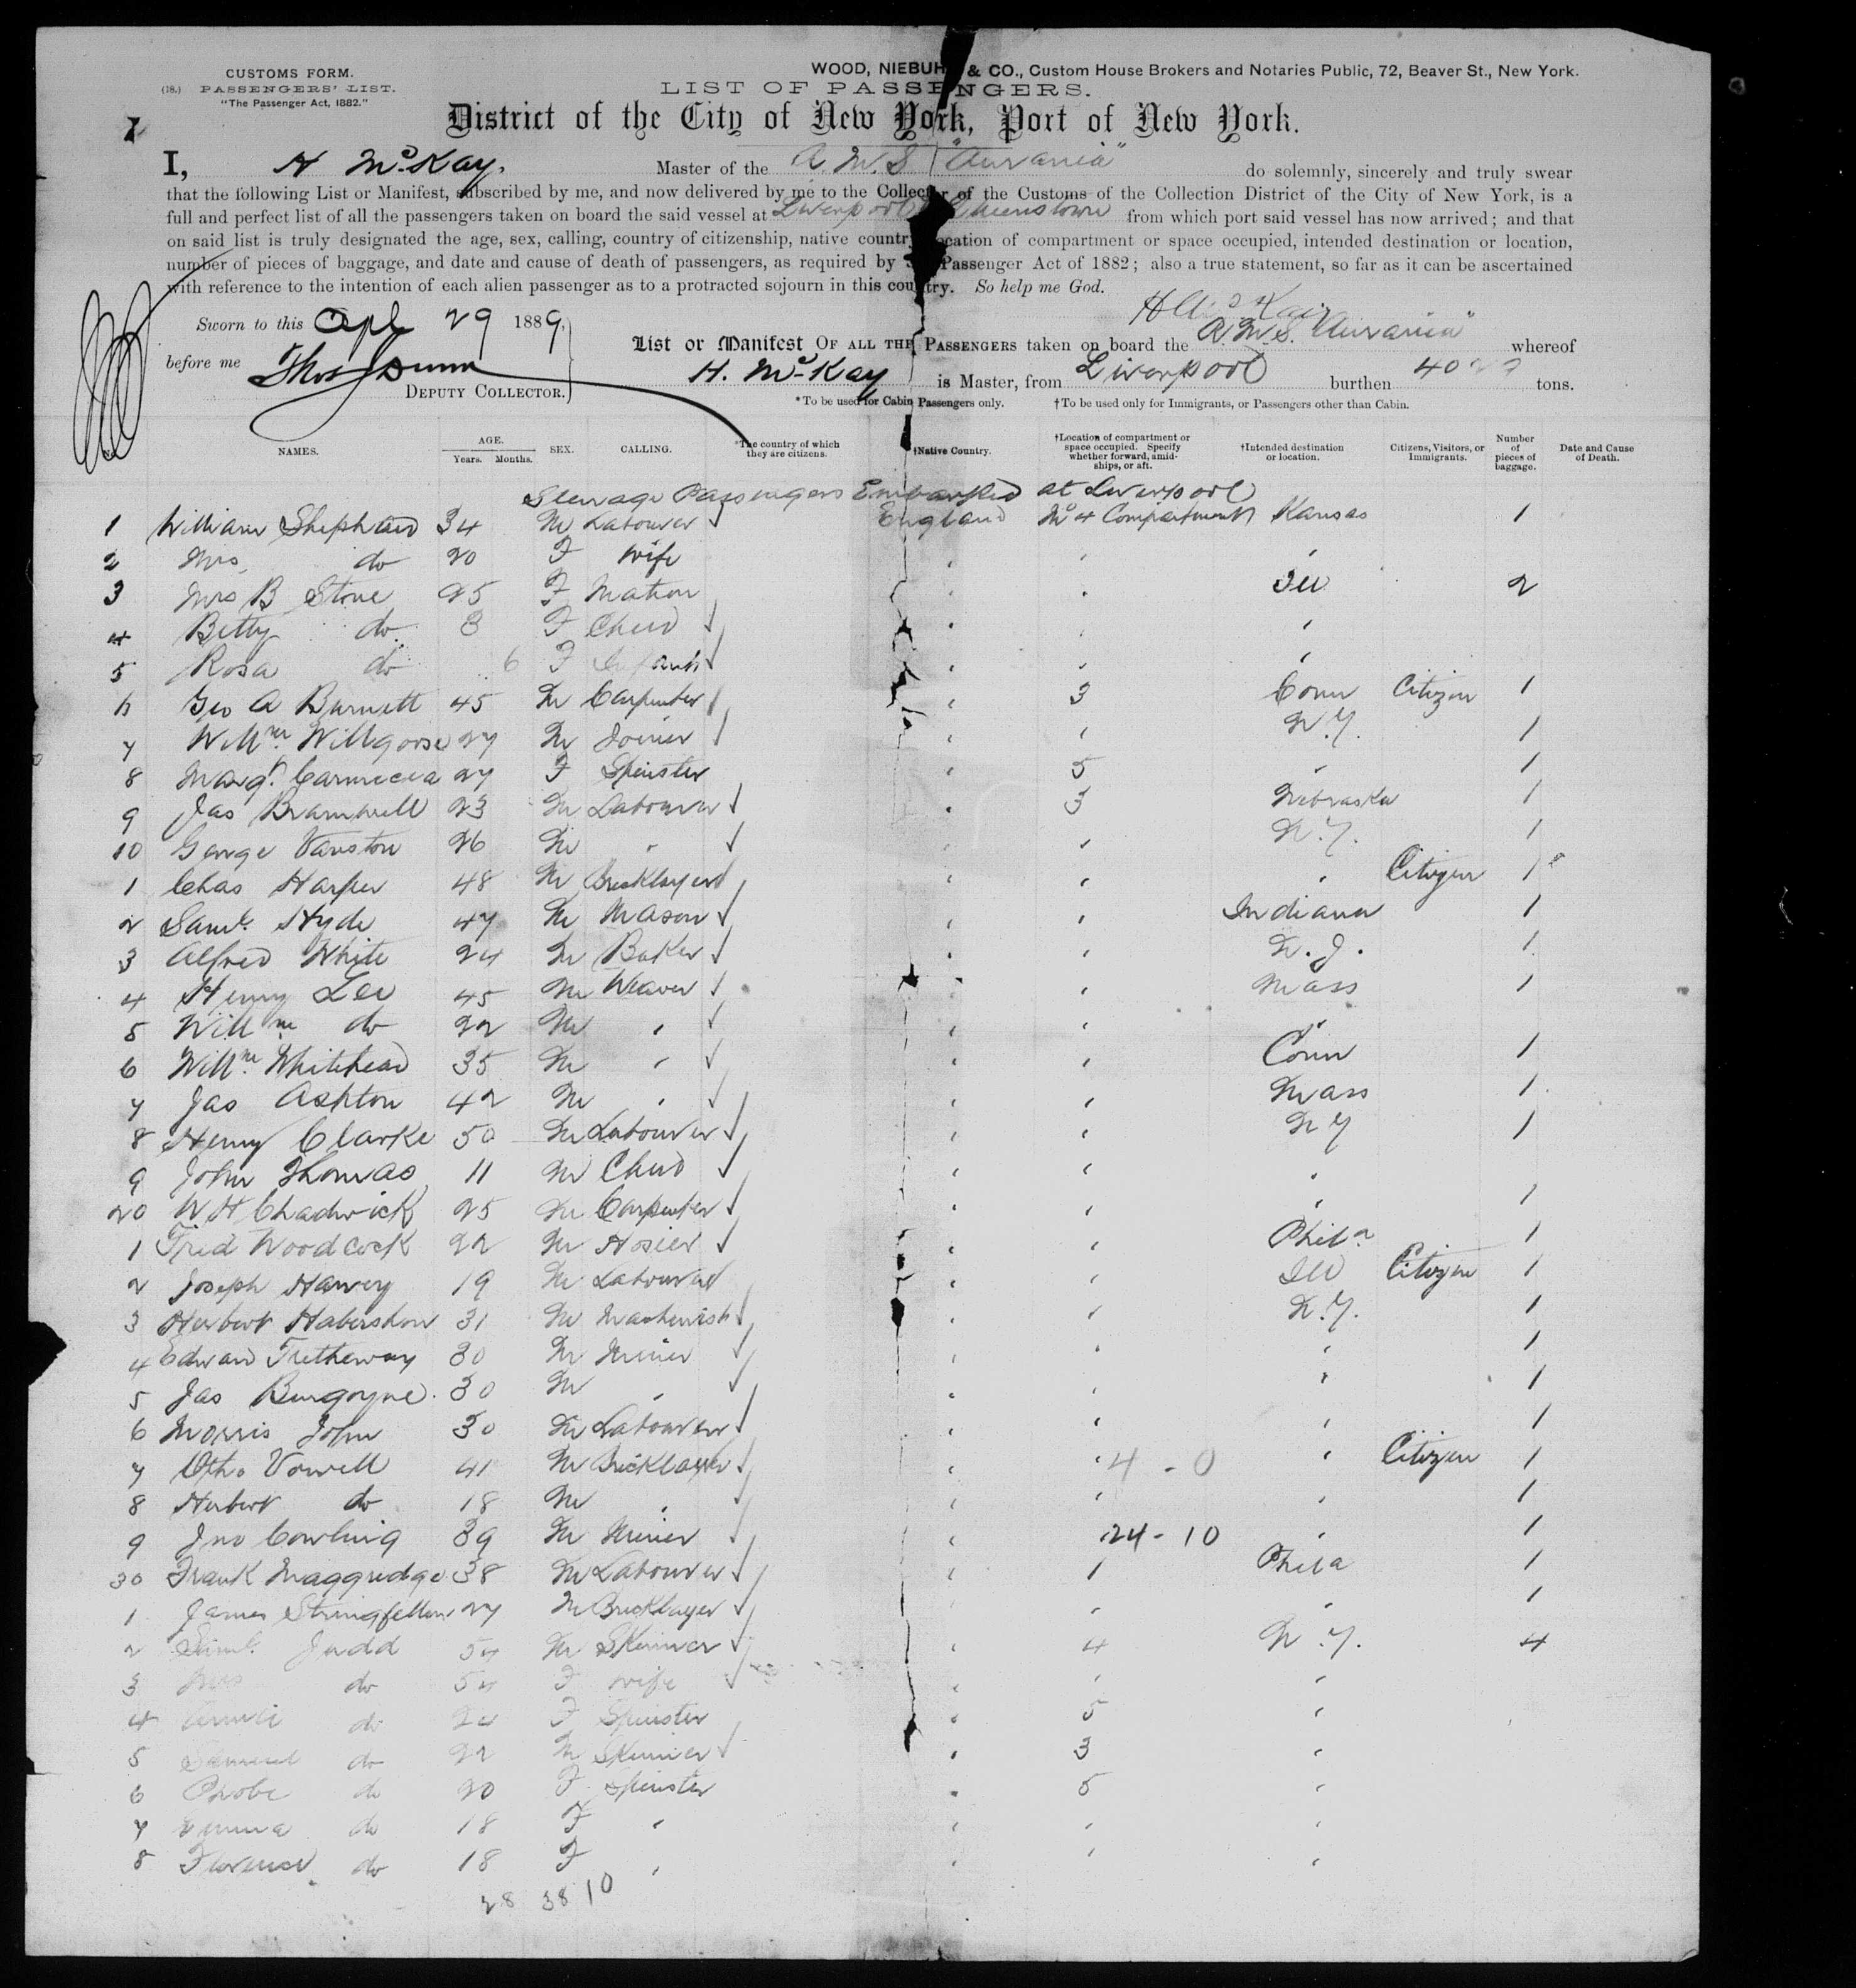 CUSTOMS FORM.
(18.) PASSENGERS' LIST.
"The Passenger Act, 1882."
WOOD, NIEBUHR & CO., Custom House Brokers and Notaries Public, 72, Beaver St., New York.
LIST OF PASSENGERS.
District of the City of New York, Port of New York.
I, H McKay, Master of the R.M.S "Aurania" do solemnly, sincerely and truly swear
that the following List or Manifest, subscribed by me, and now delivered by me to the Collector of the Customs of the Collection District of the City of New York, is a
full and perfect list of all the passengers taken on board the said vessel at Liverpool Queenstown from which port said vessel has now arrived; and that
on said list is truly designated the age, sex, calling, country of citizenship, native country, location of compartment or space occupied, intended destination or location,
number of pieces of baggage, and date and cause of death of passengers, as required by Passenger Act of 1882; also a true statement, so far as it can be ascertained
with reference to the intention of each alien passenger as to a protracted sojourn in this country. So help me God.
H McKay
Sworn to this Apl 29 1889,
before me Thos Dunn
DEPUTY COLLECTOR.
List or Manifest OF ALL THE PASSENGERS taken on board the R.M.S. "Aurania" whereof
H. McKay is Master, from Liverpool burthen tons.
*To be used for Cabin Passengers only. †To be used only for Immigrants, or Passengers other than Cabin.
NAMES. AGE. Years. Months. SEX. CALLING. *The country of which they are citizens. †Native Country. †Location of compartment or space occupied. Specify whether forward, amidships, or aft. †Intended destination or location. Citizens, Visitors, or Immigrants. Number of pieces of baggage. Date and Cause of Death.
Steerage Passengers Embarked at Liverpool
1 William Shephard 34 M Labourer England No 4 Compartment Kansas 1
2 Mrs do 20 F Wife
3 Mrs B Stone 25 F Matron Ill 2
4 Betty do 3 F Child
5 Rosa do 6 F Infant
6 Geo A Burnett 45 M Carpenter 3 Conn Citizen 1
7 Willm Willgoose 27 M Joiner N.Y. 1
8 Margt 27 F Spinster 5 1
9 Jas Bramwell 23 M Labourer 3 Nebraska 1
10 George Vanston 26 M N.Y. 1
1 Chas Harper 48 M Bricklayer Citizen 1
2 Saml Hyde 47 M Mason Indiana 1
3 Alfred White 24 M Baker N.J. 1
4 Henry Lee 45 M Weaver Mass 1
5 Willm do 22 M
6 Willm Whitehead 35 M Conn 1
7 Jas Ashton 42 M Mass 1
8 Henry Clarke 50 M Labourer N Y 1
9 John Thomas 11 M Child
20 W H Chadwick 25 M Carpenter 1
1 Fred Woodcock 22 M Hosier Phila 1
2 Joseph Harvey 19 M Labourer Ill Citizen 1
3 Herbert Habershon 31 M Machinist N.Y. 1
4 Edward Tretheway 30 M Miner 1
5 Jas Burgoyne 30 M 1
6 Morris John 30 M Labourer 1
7 Otho Vowell 41 M Bricklayer 4 - 0 Citizen 1
8 Herbert do 18 M 1
9 Jno Cowling 39 M Miner 24 - 10 1
30 Frank Maggridge 38 M Labourer 1 Phila 1
1 James Stringfellow 27 M Bricklayer 1
2 Saml Judd 54 M Skinner 4 N.Y. 4
3 Mrs do 54 F Wife
4 Annie do 24 F Spinster 5
5 Samuel do 22 M Skinner 3
6 Phobe do 20 F Spinster 5
7 Emma do 18 F
8 Florence do 18 F
28 38 10